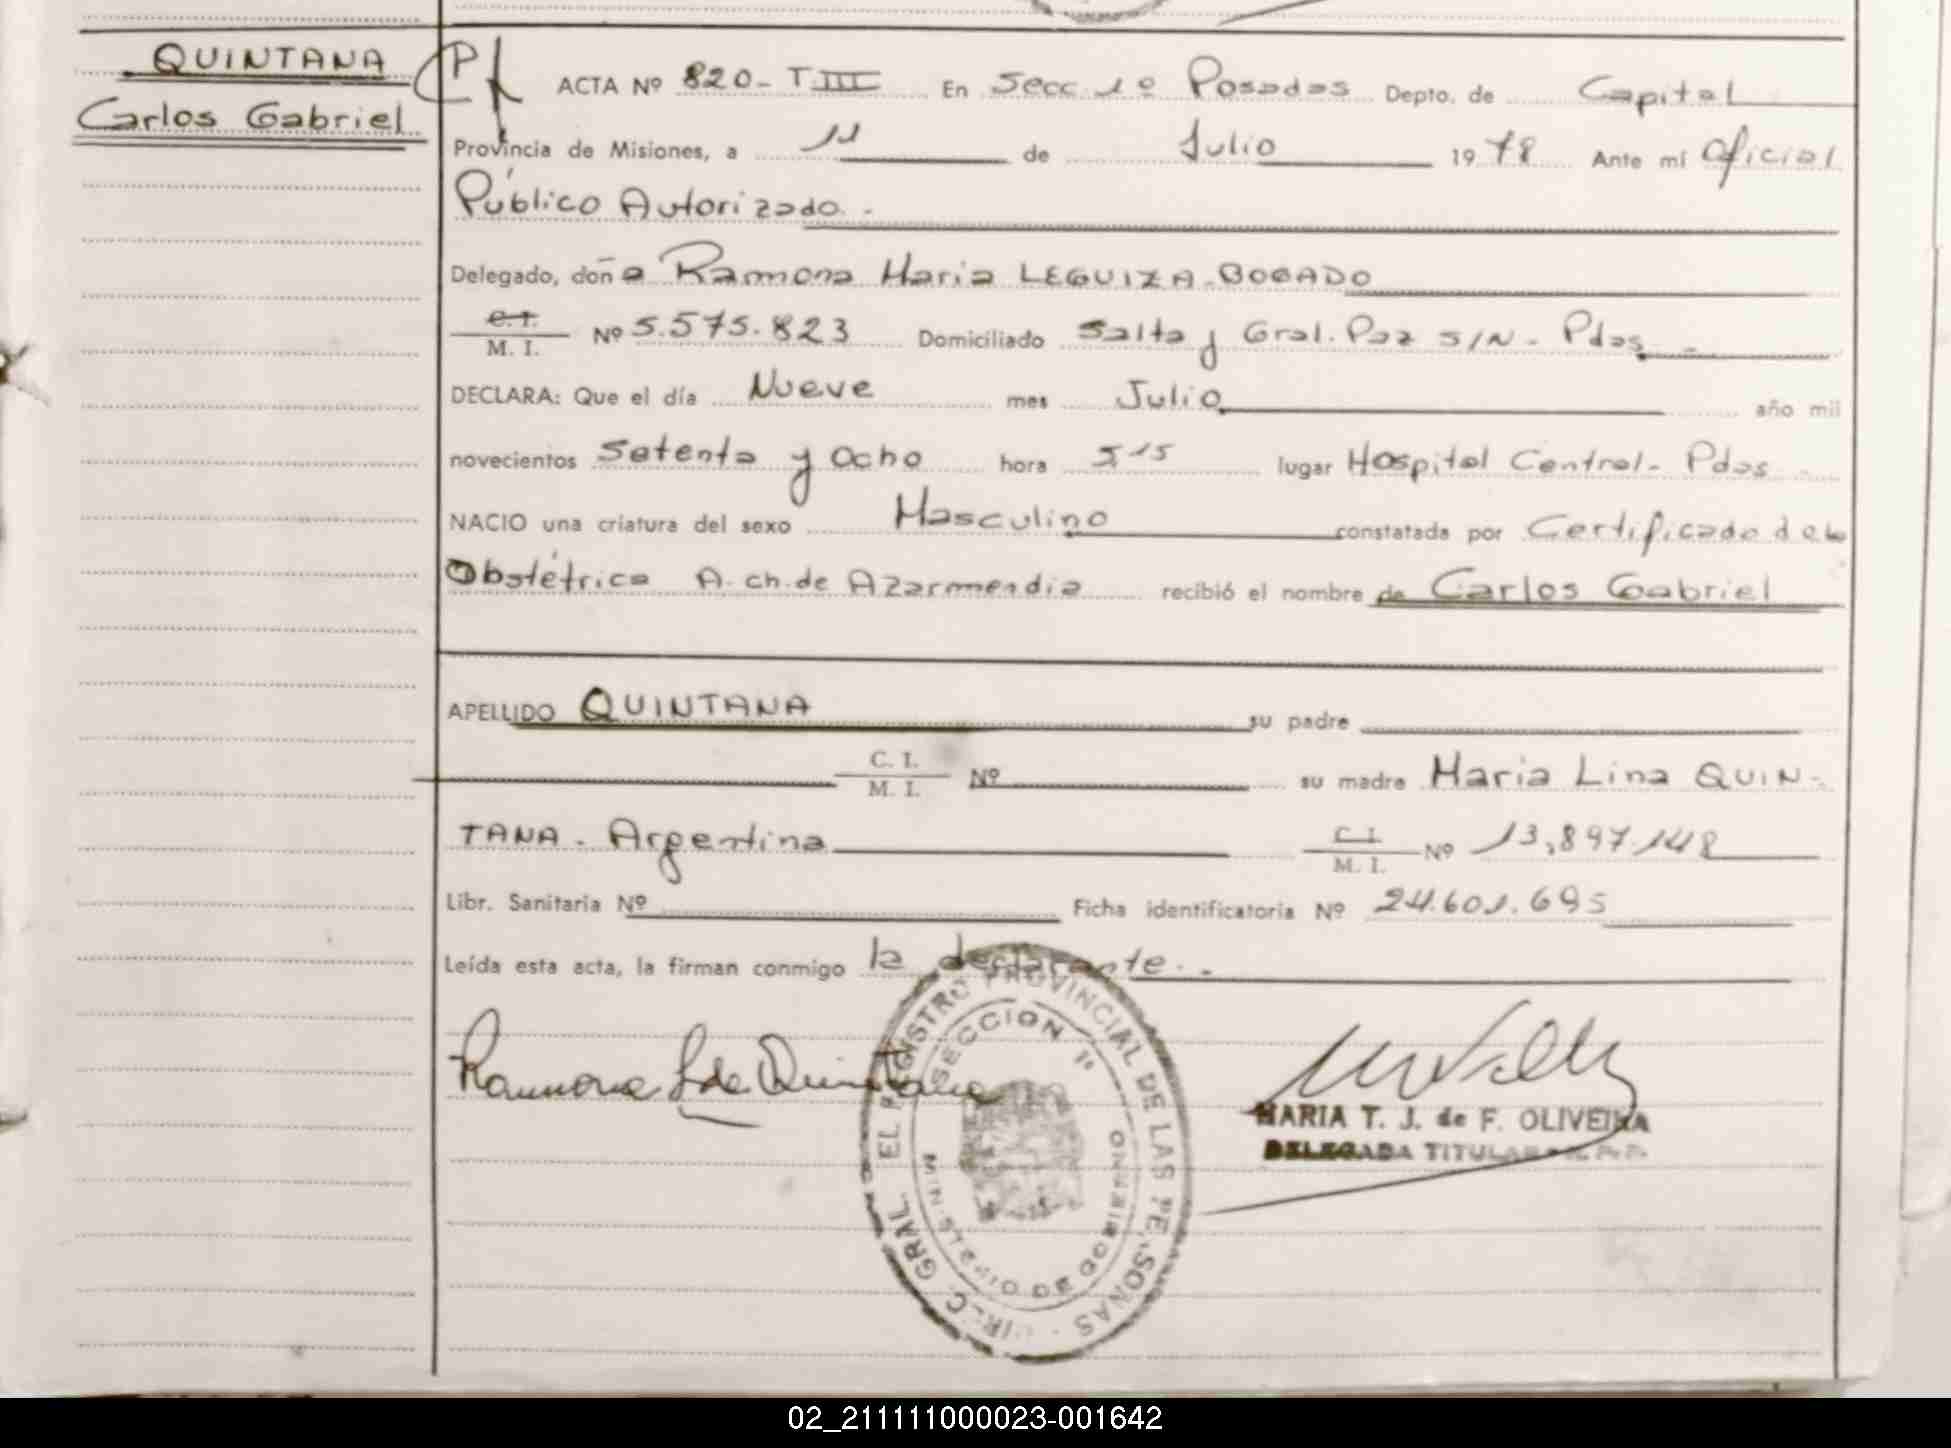 QUINTANA
Carlos Gabriel
ACTA Nº 820- T.III En Secc. 1º Posadas Depto. de Capital
Provincia de Misiones, a 11 de Julio 1978 Ante mí Oficial
Público Autorizado.-
Delegado, doña Ramona Maria LEGUIZA-BOGADO
C. I.
M. I. Nº 5.575.823 Domiciliado Salta y Gral. Paz S/N - Pdas.-
DECLARA: Que el día Nueve mes Julio año mil
novecientos Setenta y Ocho hora 5 15 lugar Hospital Central- Pdas
NACIO una criatura del sexo Masculino constatada por Certificado de la
Obstétrica A. ch. de Azarmendia recibió el nombre de Carlos Gabriel
APELLIDO QUINTANA su padre
C. I.
M. I. Nº su madre Maria Lina QUIN-
TANA. Argentina C. I.
M. I. Nº 13.897.148
Libr. Sanitaria Nº Ficha identificatoria Nº 24.601.695
Leída esta acta, la firman conmigo la declarante.-
Ramona L de Quintana
EL REGISTRO PROVINCIAL DE LAS PERSONAS
SECCION 1ª
GRAL.
MARIA T. J. de F. OLIVEIRA
DELEGADA TITULAR
02_211111000023-001642